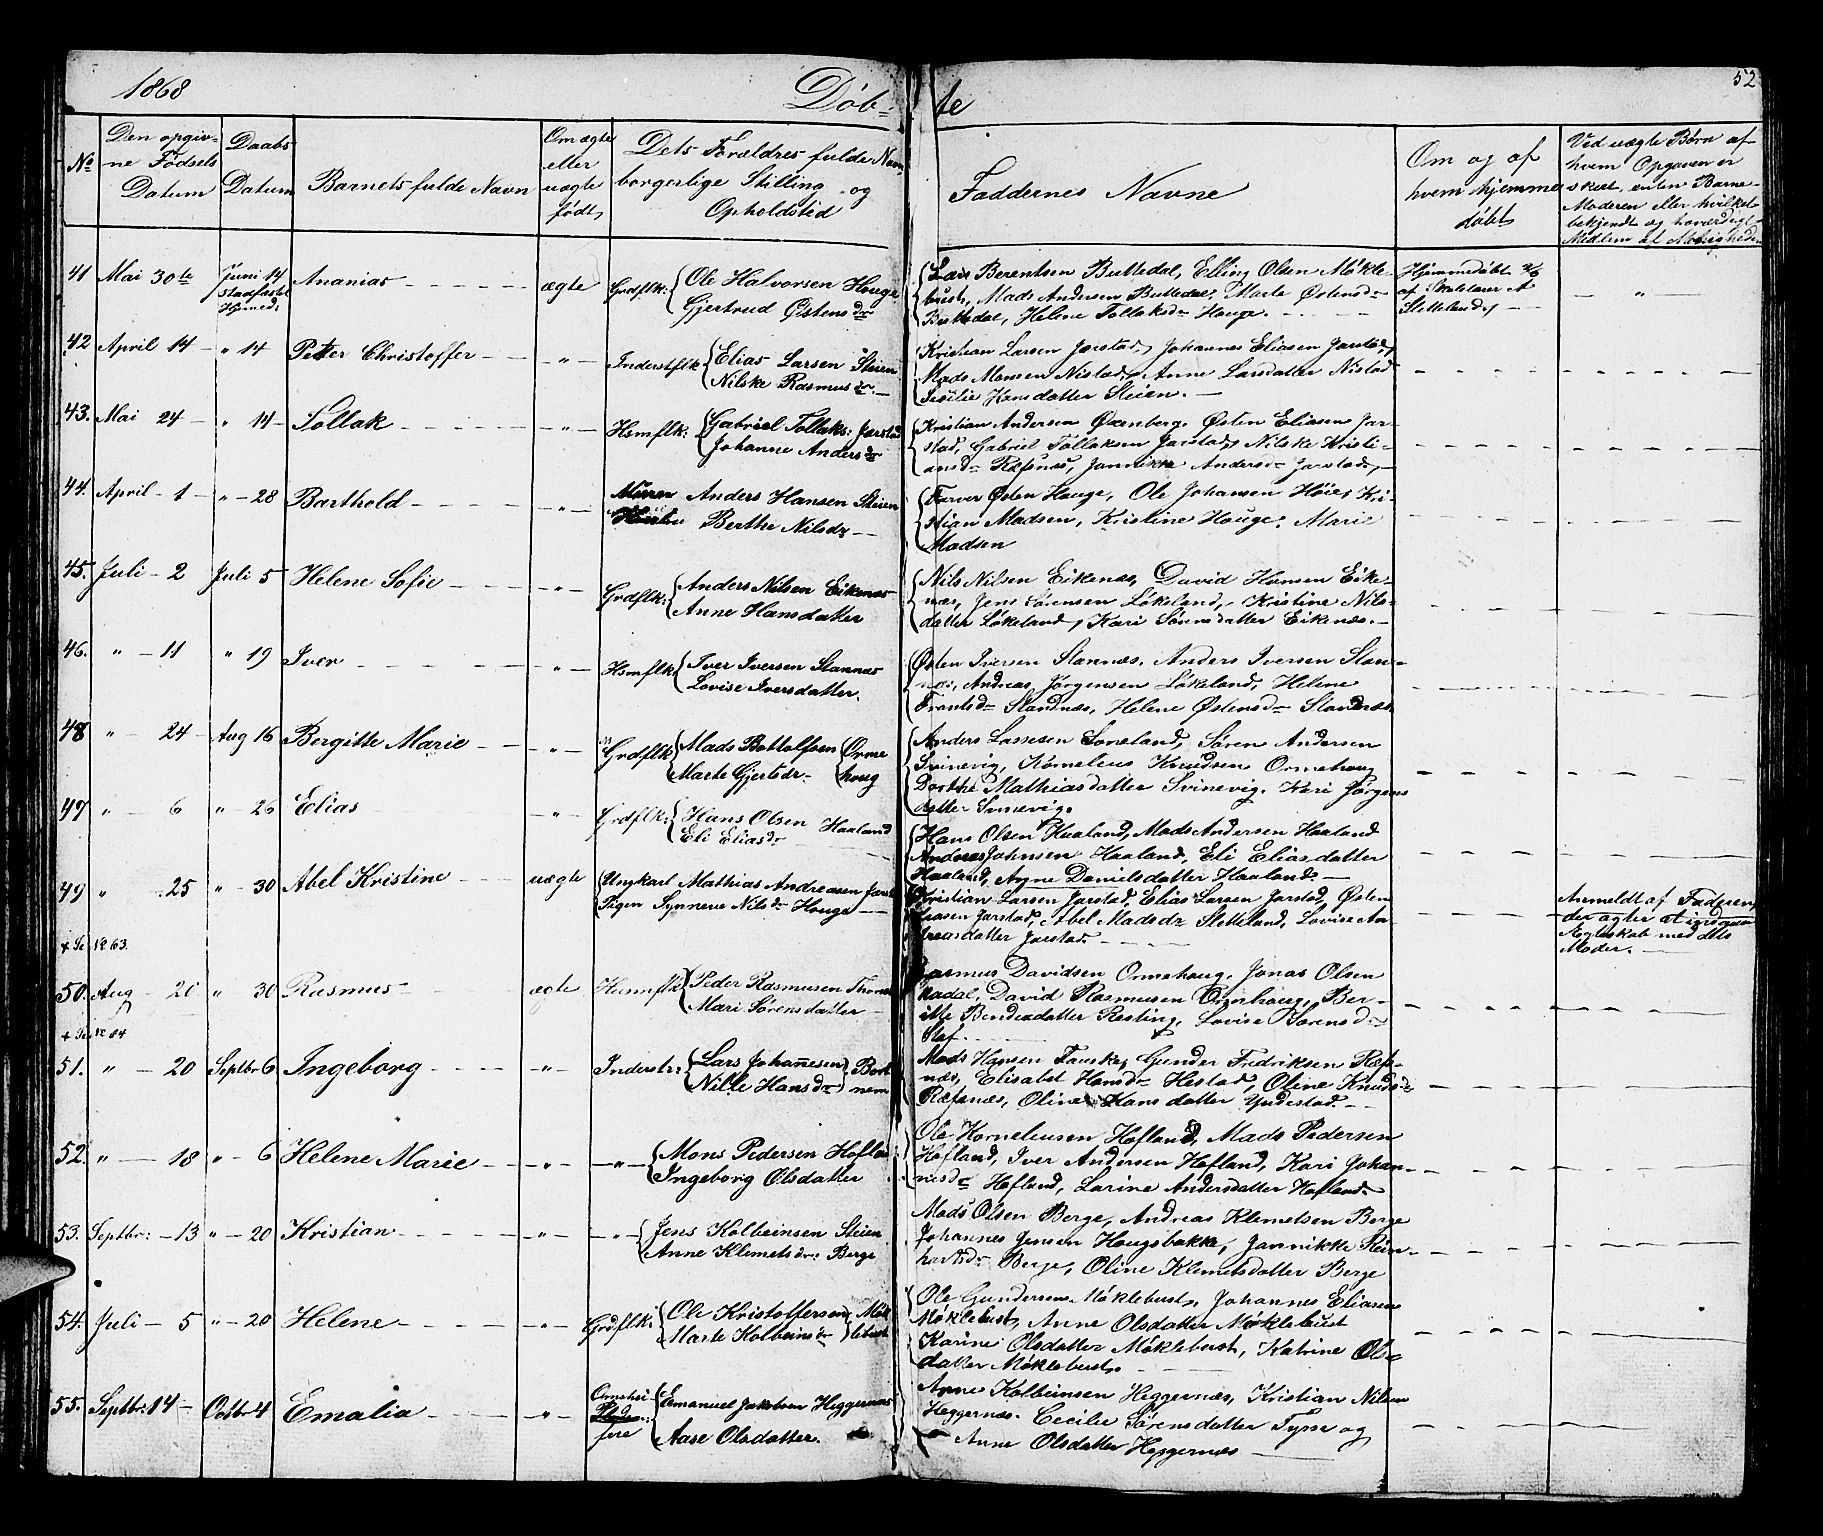 1868
Døb-
te
52
No
Den opgiv-
ne Fødsels
Datum
Daabs
Datum
Barnets fulde Navn
Om ægte
eller
uægte
født
Dets Forældres fulde Navn
borgerlige Stilling og
Opholdstid
Faddernes Navne
Om og af
hvem hjemme
døbt
Ved uægte Børn af
hvem Opgaven er
skeet, enten Barne-
Moderen eller hvilket
bekjendt og troværdigt
Medlem af Menigheden
41 Mai 30te Juni 14 Ananias ægte Grdflk: Ole Halvorsen Houge
stadfæstet
Hjmed:
Gjertrud Østensdr
Lars Berentsen Buttedal, Elling Olsen Møkle-
bust, Mads Andersen Buttedal, Marte Østensdr
Buttedal, Helene Tollaksdr Houge.
Hjemmedøbt
af Skolelærer A
Sletteland
42 April 14 " 14 Peter Christoffer " Inderstflk Elias Larsen Steien
Nilske Rasmusdr.
Kristian Larsen Jarstad, Johannes Eliasen Jarstad,
Mads Monsen Nistad, Anne Larsdatter Nistad
Sesilie Hansdatter Steien.
43. Mai 24 " 14 Tollak " Hsmflk: Gabriel Tollaks: Jarstad
Johanne Andersdr
Kristian Andersen Øxenberg, Østen Eliasen Jar-
stad, Gabriel Tollaksen Jarstad, Nilske Kristi-
ansdr Ræfsnæs, Jannikke Andersdr Jarstad,
44. April 1 " 28 Barthold " Anders Hansen Steien
Berthe Nilsdr
Farver Østen Houge, Ole Johansen Høie, Kri-
stian Madsen, Kristine Houge, Marie
Madsen
45. Juli 2 Juli 5 Helene Sofie " Grdflk: Anders Nilsen Eikenæs
Anne Hansdatter
Nils Nilsen Eikenæs, David Hansen Eike-
næs, Jens Sørensen Løkeland, Kristine Nils-
datter Løkeland, Kari Sørensdatter Eikenæs.
46. " 11 " 19 Iver " Hsmflk Iver Iversen Stannæs
Lovise Iversdatter.
Østen Iversen Stannæs, Anders Iversen Stan-
næs, Andreas Jørgensen Løkeland, Helene
Frantsdr Standnæs, Helene Østensdr Standnæs
48 " 24 Aug 16 Bergitte Marie " Grdflk Mads Bottolfsen Orme
Marte Gjertsdr houg
Anders Lassesen Soneland, Søren Andersen
Svinevig, Kornelius Knudsen Ormehoug
Dorthe Mathiasdatter Svinevig, Kari Jørgens
datter Svinevig.
47 " 6 " 26 Elias " Grdflk: Hans Olsen Haaland
Eli Eliasdr
Hans Olsen Haaland, Mads Andersen Haaland
Andreas Johnsen Haaland, Eli Eliasdatter
Haaland, Agne Danielsdatter Haaland.
49 " 25 " 30 Abel Kristine uægte Ungkarl Mathias Andreasen Jarst
Pigen Synneve Nilsdr Houge
Kristian Larsen Jarstad, Elias Larsen Jarstad, Østen
Eliasen Jarstad, Abel Madsdr Sletteland, Lovise An-
dreasdatter Jarstad.
Anmeldt af Faderen,
der agter at indgaa
Ægteskab med dets
Moder.
+ Se No 63.
50. Aug 20 " 30 Rasmus ægte Husmflk Peder Rasmusen
Mari Sørensdatter
Rasmus Davidsen Ormehoug, Jonas Olsen
David Rasmusen Ormhoug, Ber-
itte Bendixdatter Resting, Lovise Sørensd-
+ Se No 84
51. " 20 Septbr 6 Ingeborg " Inderst: Lars Johanesen Bort
Nille Hansdr nem
Mads Hansen Fauske, Gunder Fredriksen Ræf-
næs, Elisabet Hansdr Hestad, Oline Knudsdr
Ræfsnæs, Oline Hansdatter Yndestad.
52. " 18 " 6 Helene Marie " " Mons Pedersen Hofland
Ingeborg Olsdatter
Ole Korneliusen Hofland, Mads Pedersen
Hofland, Iver Andersen Hofland, Kari Johan-
nesdr Hofland, Larine Andersdatter Hofland.
53. Septbr: 13 " 20 Kristian " " Jens Kolbeinsen Steien
Anne Klemetsdr: Berge
Mads Olsen Berge, Andreas Klemetsen Berge
Johannes Jensen Hougsbakke, Jannikke Rein-
hartsdr Berge, Oline Klemetsdatter Berge
54. Juli 5 " 20 Helene " Grdflk: Ole Kristoffersen Møk
Marte Kolbeinsdr lebust
Ole Gundersen Møklebust, Johannes Eliasen
Møklebust, Anne Olsdatter Møklebust
Karine Olsdatter Møklebust, Katrine Ols-
datter Møklebust.
55. Septbr: 14 Octbr 4 Emalia " Emanuel Jakobsen Heggernæs
Aase Olsdatter.
Anne Kolbeinsen Heggernæs, Kristian Nilsen
Heggernæs, Cecilie Sørensdatter Tysse og
Anne Olsdatter Heggernæs